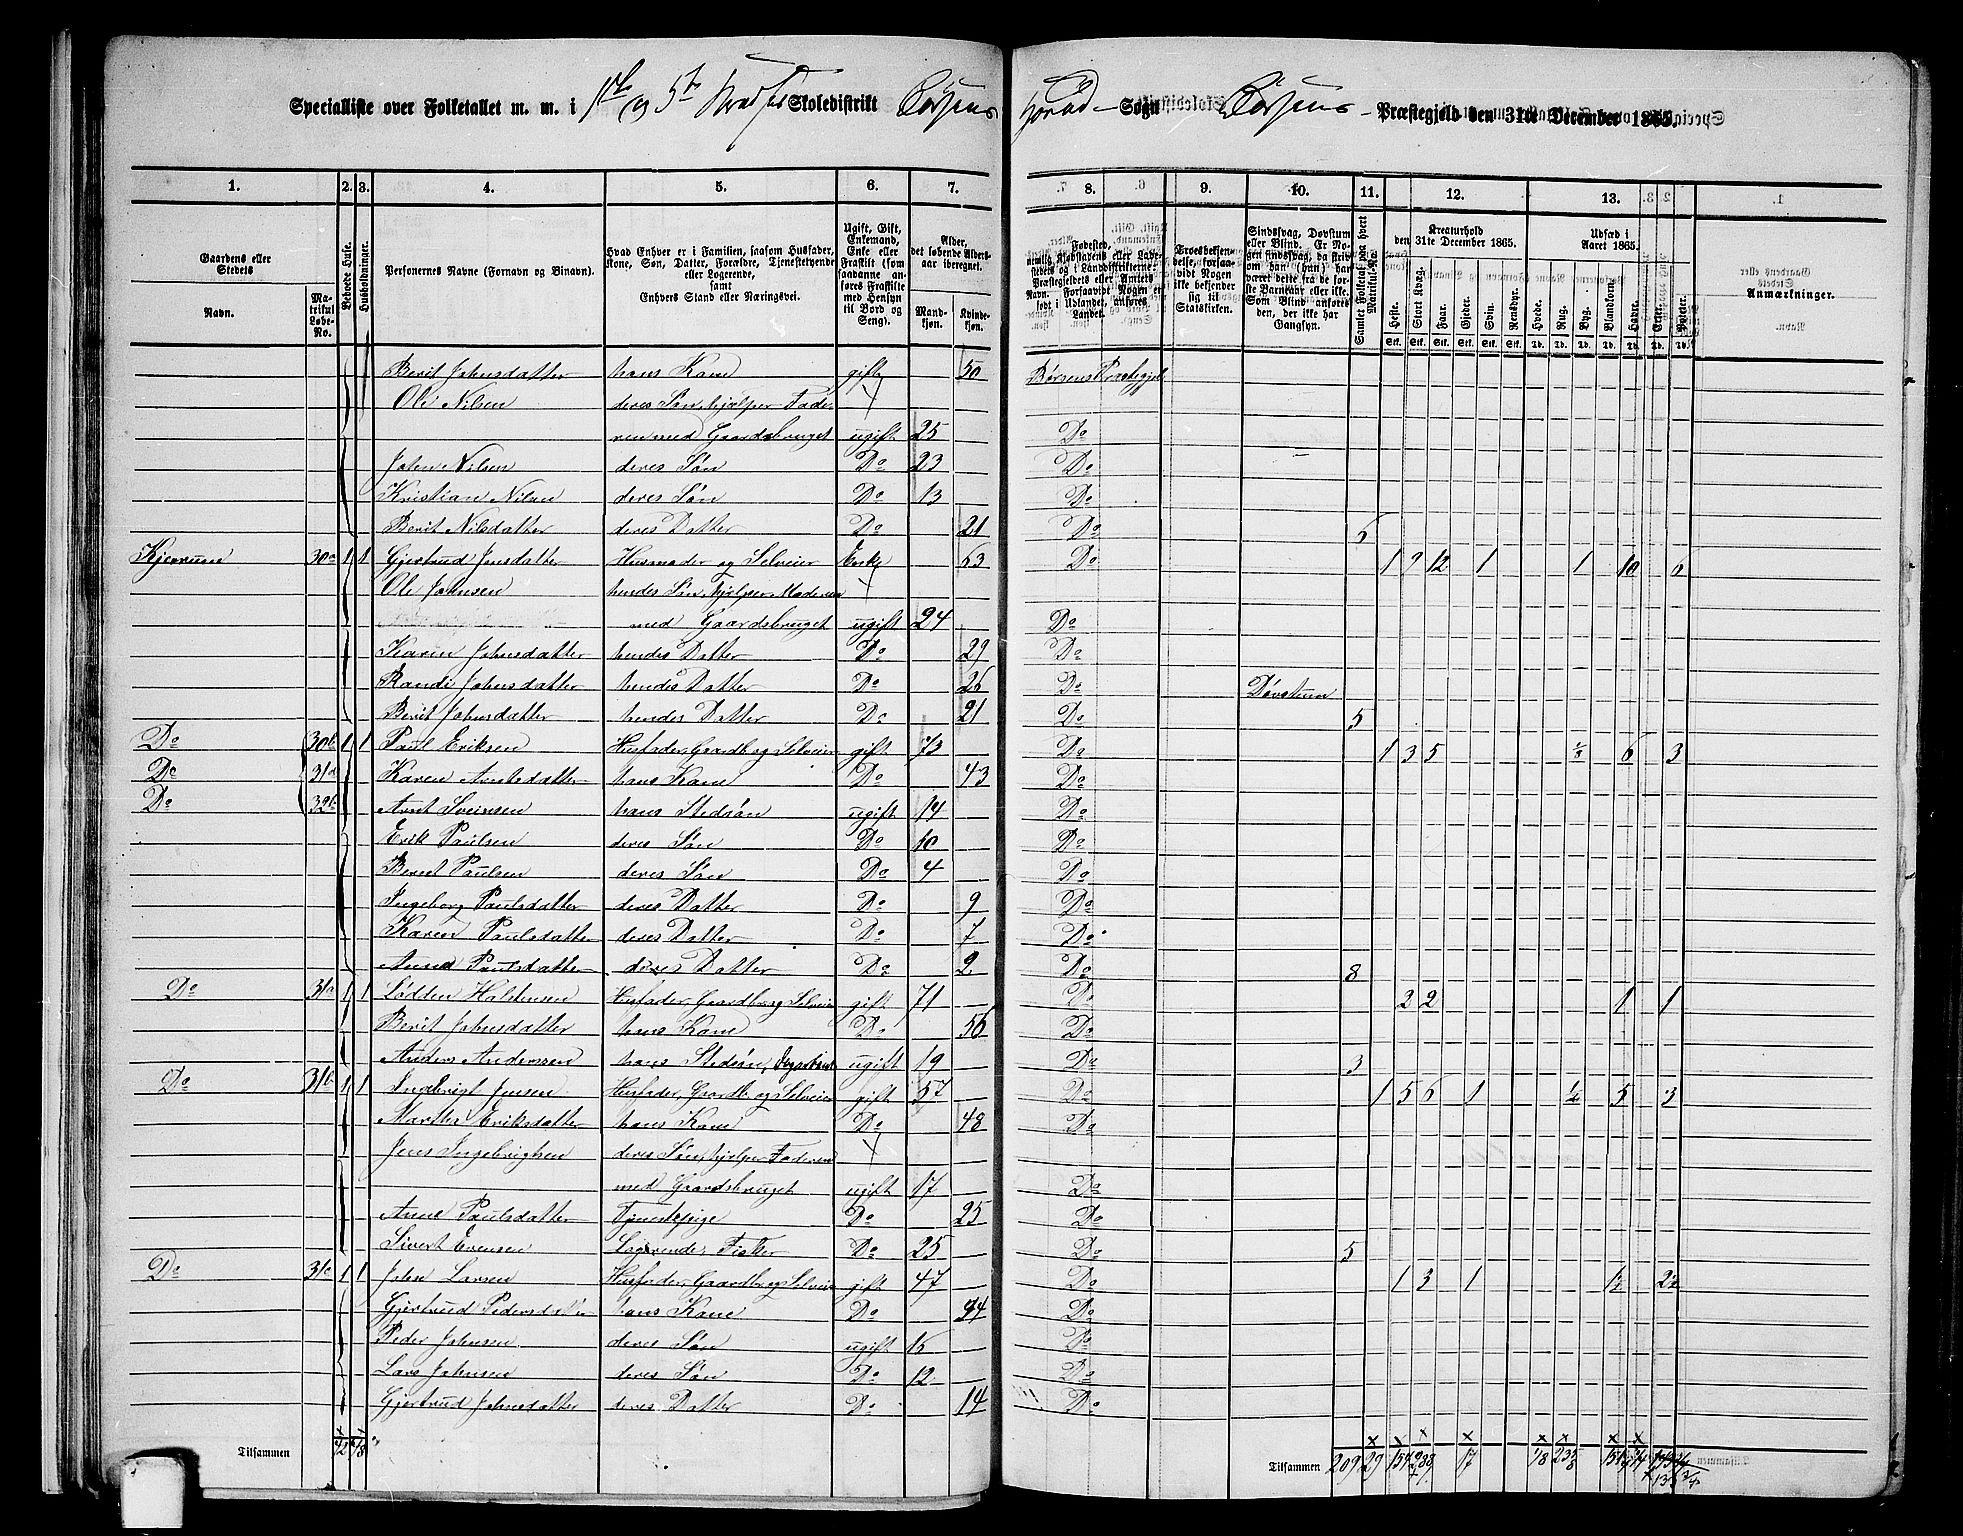 Specialliste over Folketallet m. m. i 1ste og 5te Skoledistrikt Børsens Sogn Børsens Præstegjeld den 31te December 1865.
1. 2. 3. 4. 5. 6. 7. 8. 9. 10. 11. 12. 13. 1.
Gaardens eller Stedets Navn. Matrikul Løbe-No. Beboede Huse. Husholdninger. Personernes Navne (Fornavn og Binavn). Hvad Enhver er i Familien, saasom Husfader, Kone, Søn, Datter, Forældre, Tjenestetyende eller Logerende, samt Enhvers Stand eller Næringsvei. Ugift, Gift, Enkemand, Enke eller Fraskilt (som saadanne anføres Fraskilte med Hensyn til Bord og Seng). Alder, det løbende Alders-aar iberegnet. Mandkjøn. Kvindekjøn.
Troesbekjendelse, forsaavidt Nogen ikke bekjender sig til Statskirken. Samlet Folketal paa hvert Matrikul-No. Kreaturhold den 31te December 1865. Heste. Stort Kvæg. Faar. Gjeder. Svin. Rensdyr. Udsæd i Aaret 1865. Hvede. Rug. Byg. Blandkorn. Havre. Erter. Poteter. Anmærkninger.
Berit Johnsdatter hans Kone gift 50 Børsens Præstegjeld
Ole Nilsen deres Søn, hjælper Fade-
ren med Gaardsbruget ugift 25 Do
John Nilsen deres Søn Do 23 Do
Kristian Nilsen deres Søn Do 13 Do
Berit Nilsdatter deres Datter Do 21 Do 6
Kjerrum 30a 1 1 Gjertrud Jensdatter Husmoder og Selveier Enke 63 Do 1 9 12 1 1 10 6
Ole Johnsen hendes Søn, hjælper Moderen
med Gaardsbruget ugift 24 Do
Karen Johnsdatter hendes Datter Do 29 Do
Randi Johnsdatter hendes Datter Do 26 Do Døvstum
Berit Johnsdatter hendes Datter Do 21 Do 5
Do 30b 1 1 Paul Eriksen Husfader, Gaardb og Selveier gift 73 Do 1 3 5 6 3
Do 31d Karen Arntsdatter hans Kone Do 43 Do
Do 32b Arnt Svensen hans Stedsøn ugift 14 Do
Erik Paulsen deres Søn Do 10 Do
Bernt Paulsen deres Søn Do 4 Do
Ingeborg Paulsdatter deres Datter Do 9 Do
Karen Paulsdatter deres Datter Do 7 Do
Anne Paulsdatter deres Datter Do 2 Do 8
Do 31a 1 1 Lødden Halstensen Husfader, Gaardb og Selveier gift 71 Do 2 2 1 1
Berit Johnsdatter hans Kone Do 56 Do
Anders Anderssen hans Stedsøn ugift 19 Do 3
Do 31b 1 1 Ingebrigt Jensen Husfader, Gaardb og Selveier gift 57 Do 1 5 6 1 1/2 5 3
Marthe Eriksdatter hans Kone Do 48 Do
Jens Ingebrigtsen deres Søn, hjælper Faderen
med Gaardsbruget ugift 17 Do
Anne Paulsdatter Tjenestepige Do 25 Do
Sivert Evensen Logerende, Fisker Do 25 Do 5
Do 31c 1 1 John Larsen Husfader, Gaardb og Selveier gift 47 Do 1 3 1 1½ 2½
Gjertrud Pedersdatter hans Kone Do 44 Do
Peder Johnsen deres Søn ugift 15 Do
Lars Johnsen deres Søn Do 12 Do
Gjertrud Johnsdatter deres Datter Do 14 Do
Tilsammen 42 48 Tilsammen 209 29